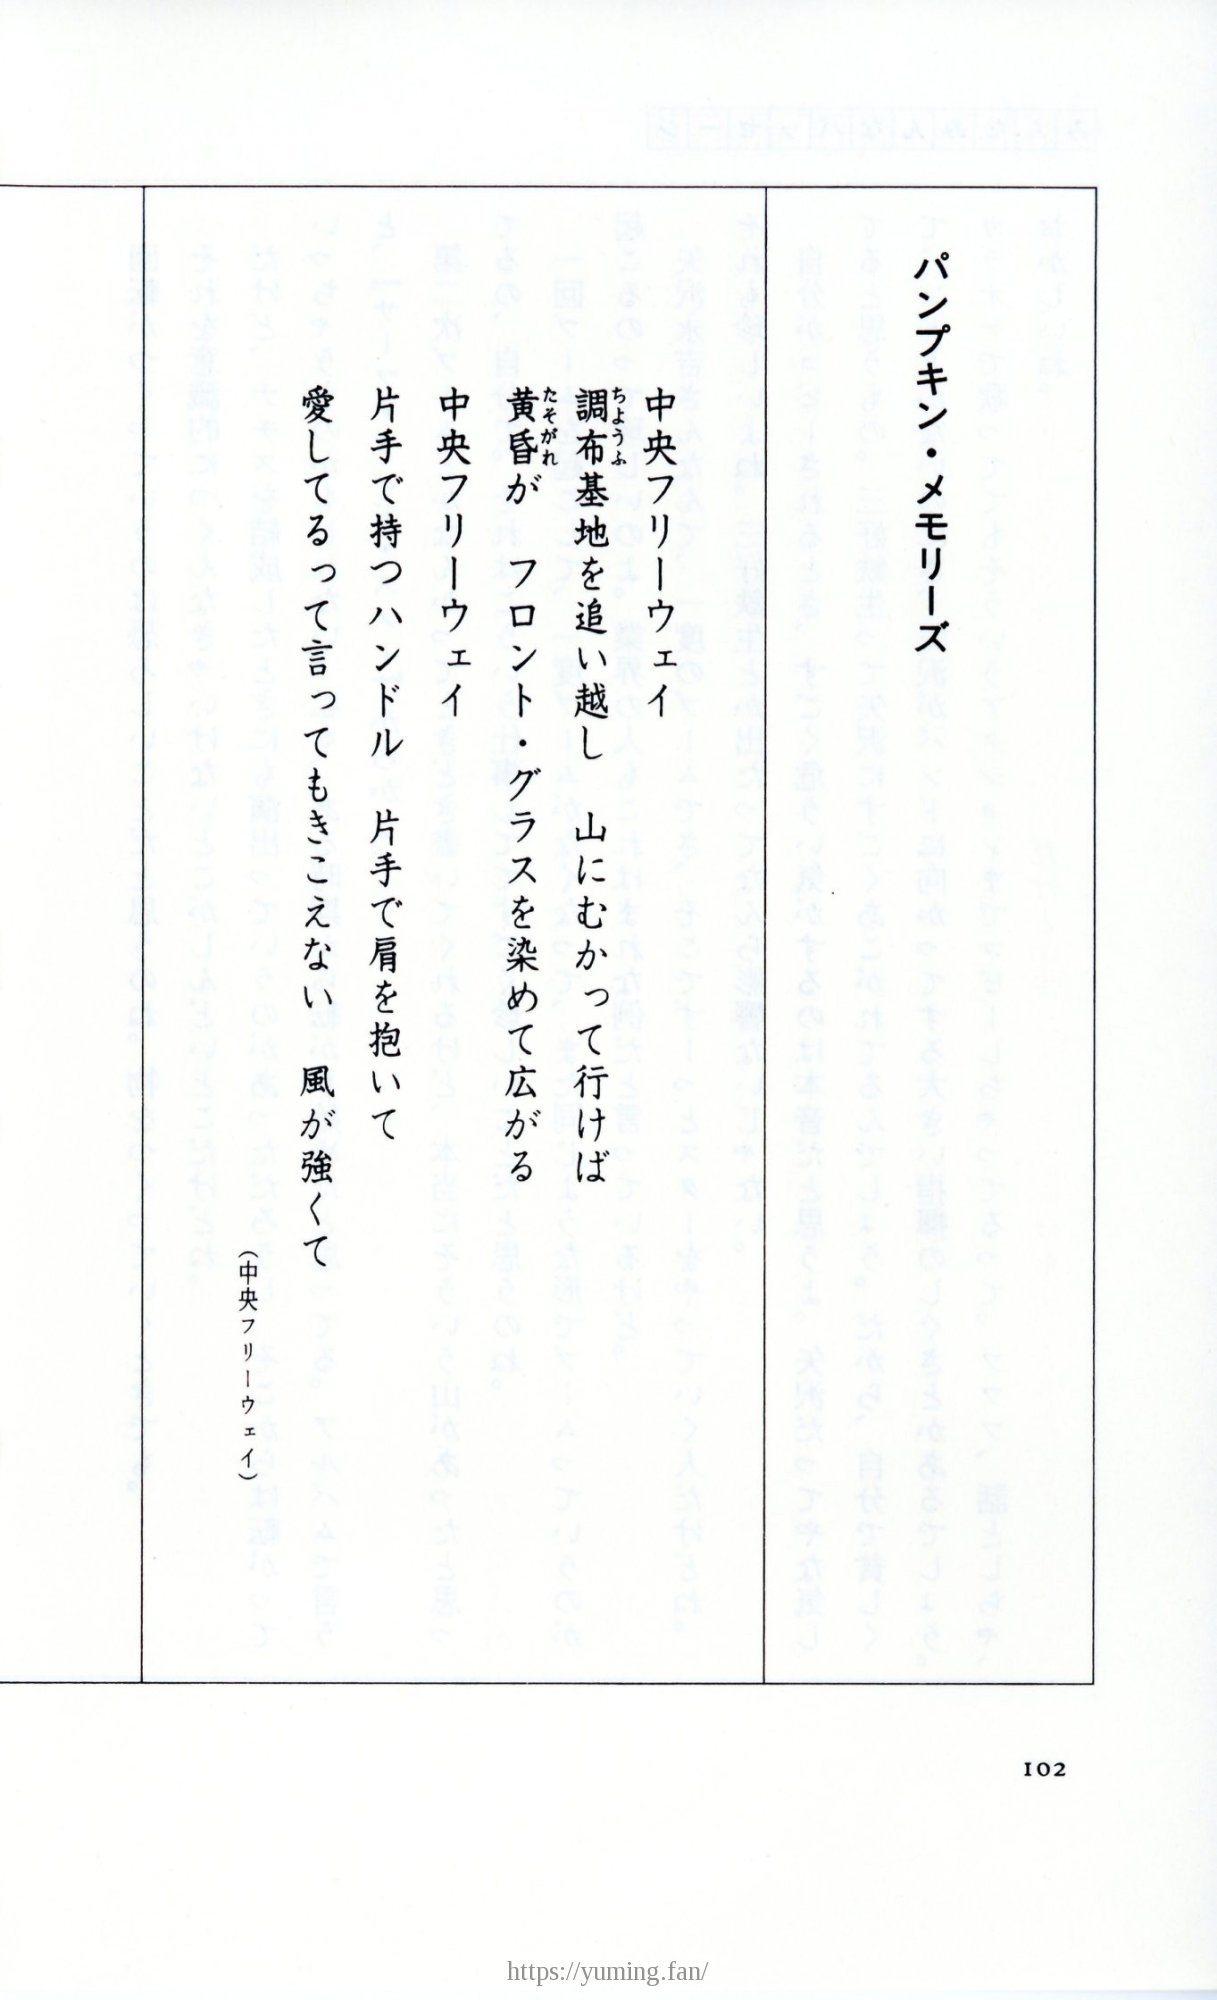 パンプキン・メモリーズ
中央フリーウェイ
調布基地を追い越し　山にむかって行けば
ちようふ
黄昏が　フロント・グラスを染めて広がる
たそがれ
中央フリーウェイ
片手で持つハンドル　片手で肩を抱いて
愛してるって言ってもきこえない　風が強くて
（中央フリーウェイ）
102
https://yuming.fan/